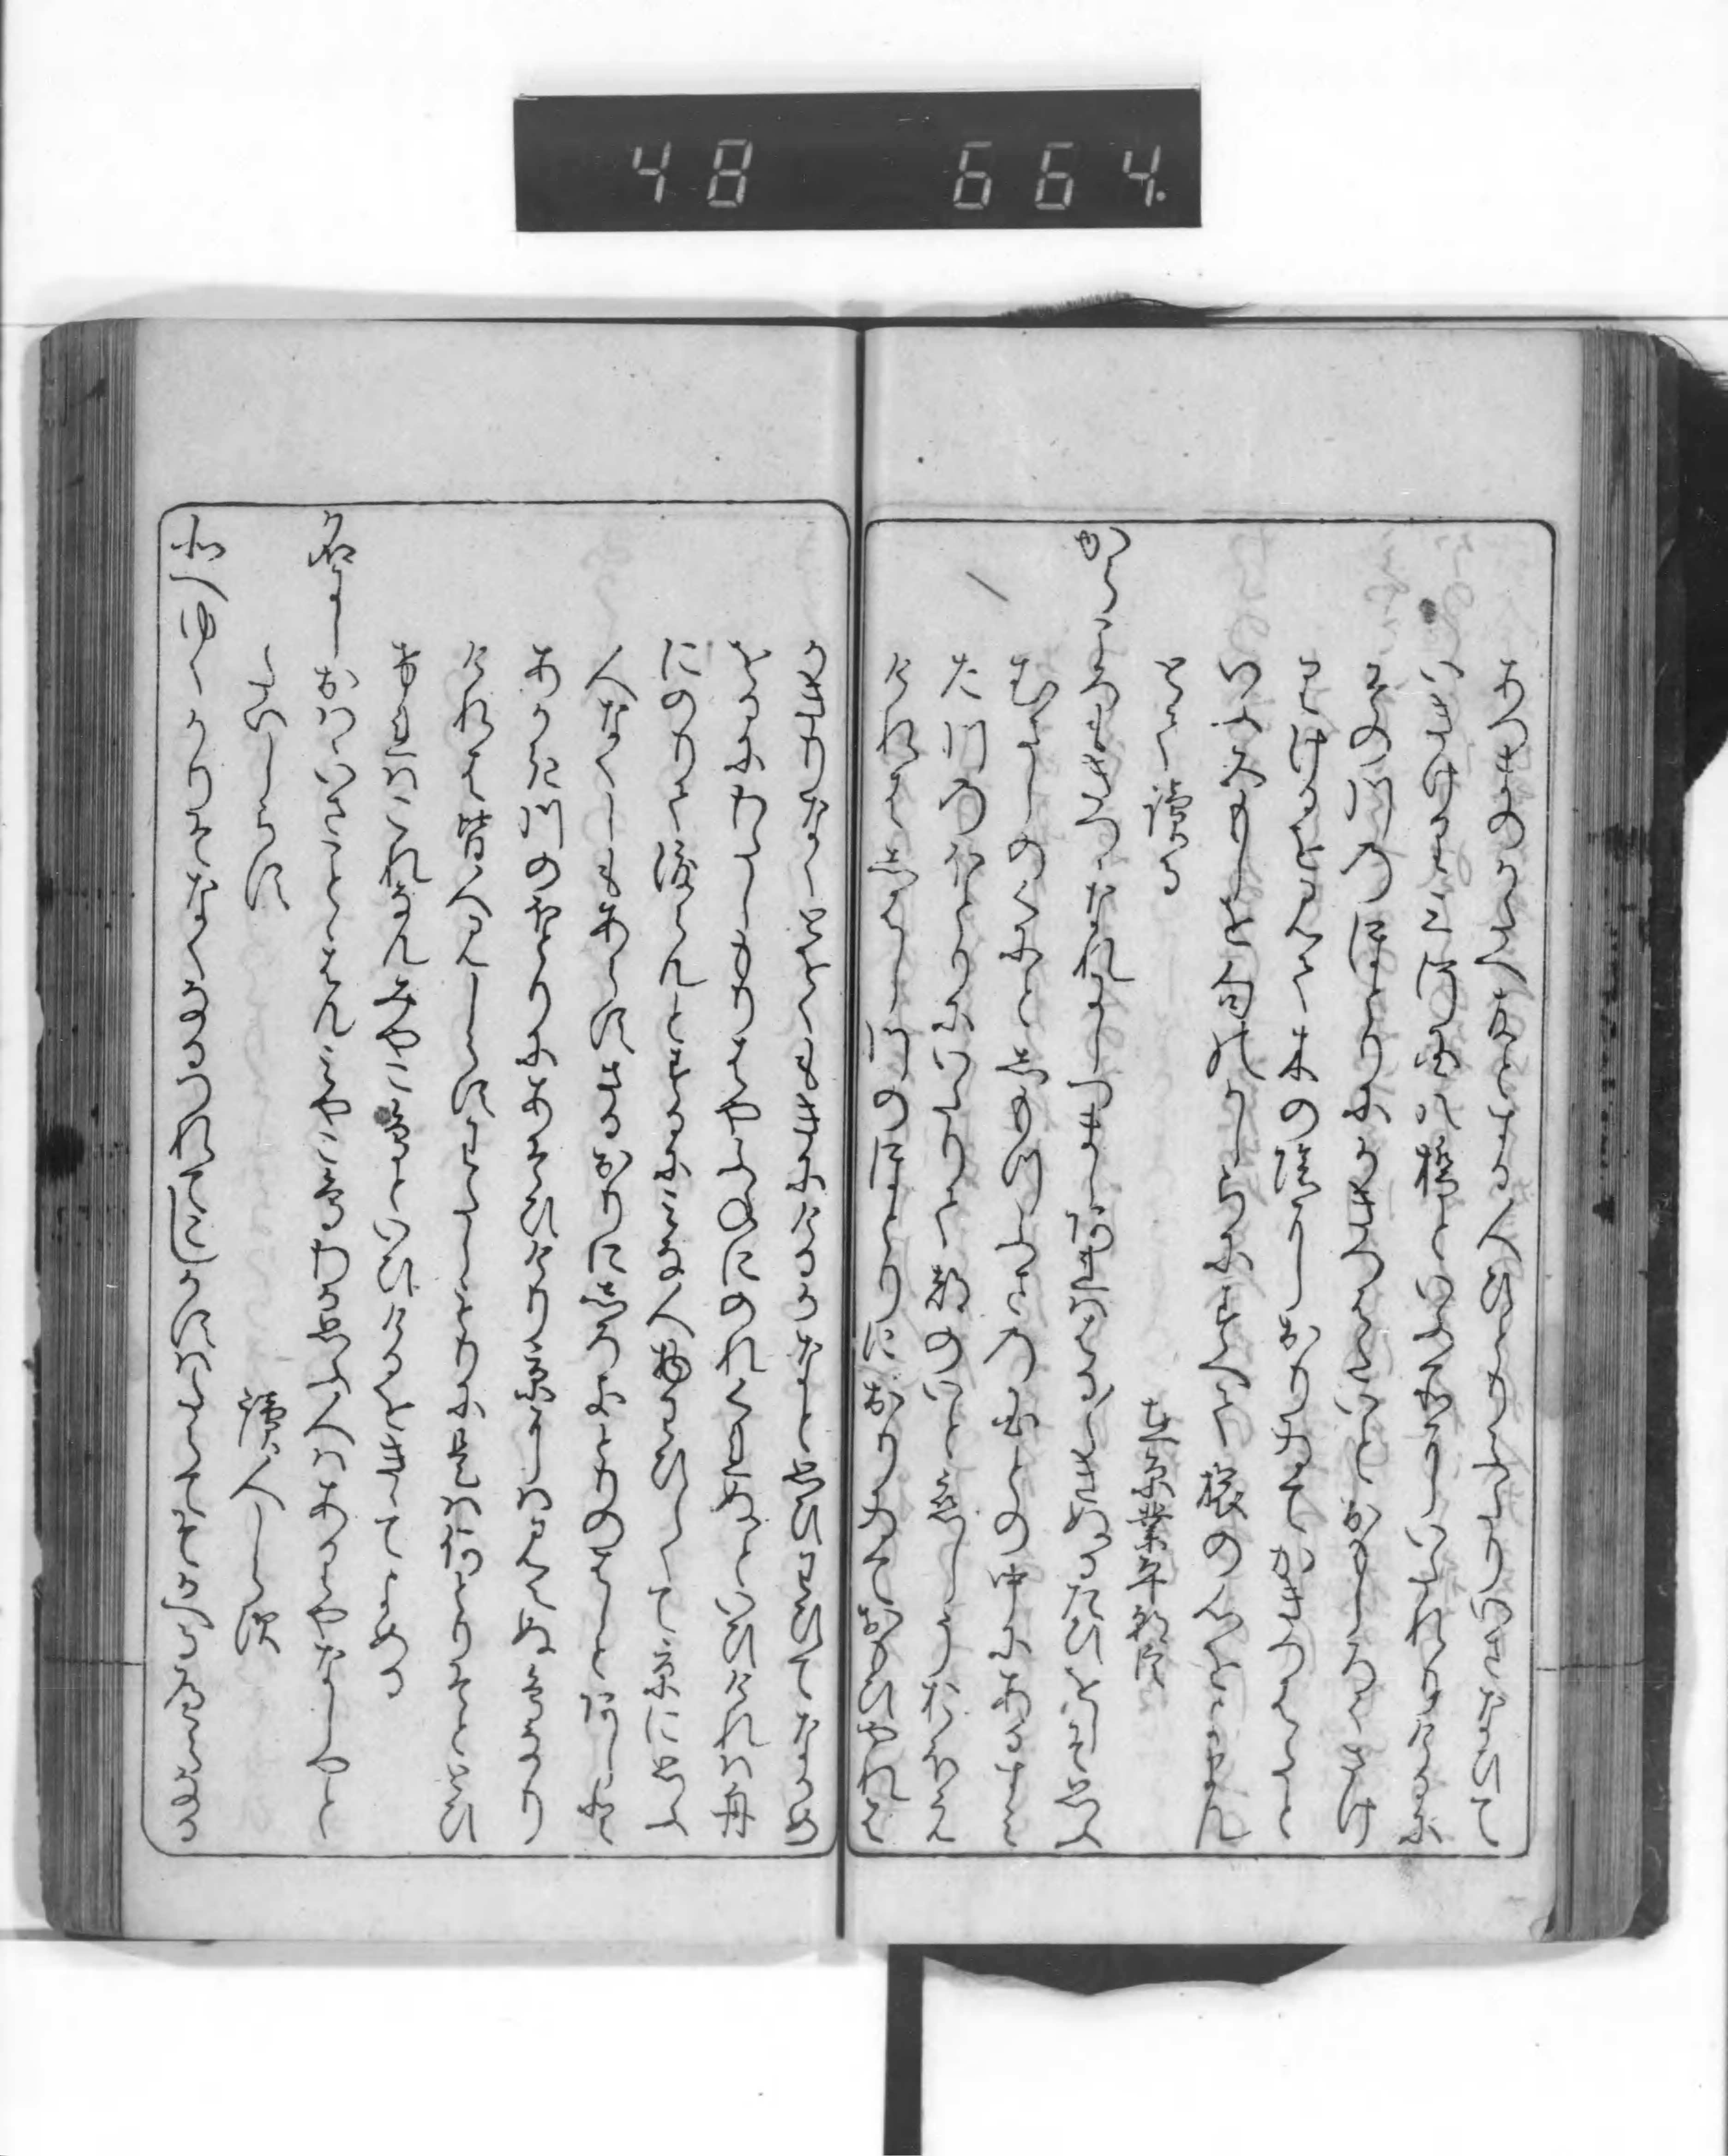 48 664.
あつまのかたへともとする人ひとりふたりいさなひて
いきけりみかはの国八橋といふ所にいたれりけるに
その川のほとりにかきつはたいとおもしろくさけ
りけるをみて木の陰におりゐてかきつはたと
いふ五もしを句のかしらにすへて旅の心をよまん
とてよめる
在原業平朝臣
から衣きつゝなれにしつましあれははる〳〵きぬるたひをしそ思ふ
むさしのくにと下つふさの国との中にある
た川のほとりにいたりて都のいと恋しうおほえ
けれはしはし川のほとりにおりゐておもひやれは
かきりなくとをくもきにけるかなと思ひわひてなかめ
をるにわたしもりはや舟にのれ日くれぬといひけれは舟
にのりて渡らんとするにみな人物わひしくて京に思ふ
人なくしもあらすさるおりに白き鳥のはしとあしと
あかき川のほとりにあそひけり京には見えぬ鳥なり
けれは皆人見しらすわたしもりにこれは何鳥そととひ
けれはこれなんみやこ鳥といひけるをきゝてよめる
名にしおはゝいさことゝはんみやこ鳥わか思ふ人はありやなしやと
題しらす
読人しらす
北へゆくかりそなくなるつれてこしかすはたらてそかへるへらなる